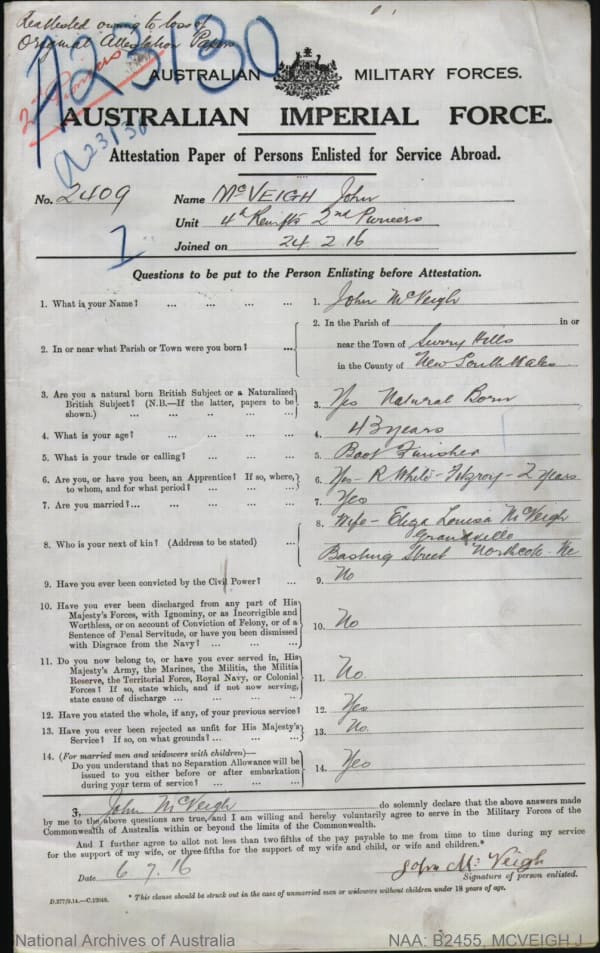 Reattested owing to loss of
Original Attestation Paper
123130
2nd Pioneers
a 23130
AUSTRALIAN MILITARY FORCES.
AUSTRALIAN IMPERIAL FORCE.
Attestation Paper of Persons Enlisted for Service Abroad.
No. 2409 Name McVEIGH John
Unit 4th Reinfts 2nd Pioneers
Joined on 24.2.16
1
Questions to be put to the Person Enlisting before Attestation.
1. What is your Name? ... ... ... ... 1. John McVeigh
2. In or near what Parish or Town were you born? ... 2. In the Parish of in or
near the Town of Surry Hills
in the County of New South Wales
3. Are you a natural born British Subject or a Naturalized
British Subject? (N.B.—If the latter, papers to be
shown.) ... ... ... ... ... 3. Yes Natural Born
4. What is your age? ... ... ... ... 4. 43 years
5. What is your trade or calling? ... ... ... 5. Boot Finisher
6. Are you, or have you been, an Apprentice? If so, where,
to whom, and for what period? ... ... ... 6. Yes - R White - Fitzroy - 2 years
7. Are you married?... ... ... ... ... 7. Yes
8. Who is your next of kin? (Address to be stated) ... 8. Wife - Eliza Louisa McVeigh
Street Northcote
9. Have you ever been convicted by the Civil Power? ... 9. No
10. Have you ever been discharged from any part of His
Majesty's Forces, with Ignominy, or as Incorrigible and
Worthless, or on account of Conviction of Felony, or of a
Sentence of Penal Servitude, or have you been dismissed
with Disgrace from the Navy? ... ... ... 10. No
11. Do you now belong to, or have you ever served in, His
Majesty's Army, the Marines, the Militia, the Militia
Reserve, the Territorial Force, Royal Navy, or Colonial
Forces? If so, state which, and if not now serving,
state cause of discharge ... ... ... ... 11. No.
12. Have you stated the whole, if any, of your previous service? 12. Yes
13. Have you ever been rejected as unfit for His Majesty's
Service? If so, on what grounds? ... ... ... 13. No.
14. (For married men and widowers with children)—
Do you understand that no Separation Allowance will be
issued to you either before or after embarkation
during your term of service? ... ... ... 14. Yes
I, John McVeigh do solemnly declare that the above answers made
by me to the above questions are true, and I am willing and hereby voluntarily agree to serve in the Military Forces of the
Commonwealth of Australia within or beyond the limits of the Commonwealth.
And I further agree to allot not less than two fifths of the pay payable to me from time to time during my service
for the support of my wife, or three-fifths for the support of my wife and child, or wife and children.*
Date 6.7.16 John McVeigh
Signature of person enlisted.
* This clause should be struck out in the case of unmarried men or widowers without children under 18 years of age.
National Archives of Australia NAA: B2455, MCVEIGH J